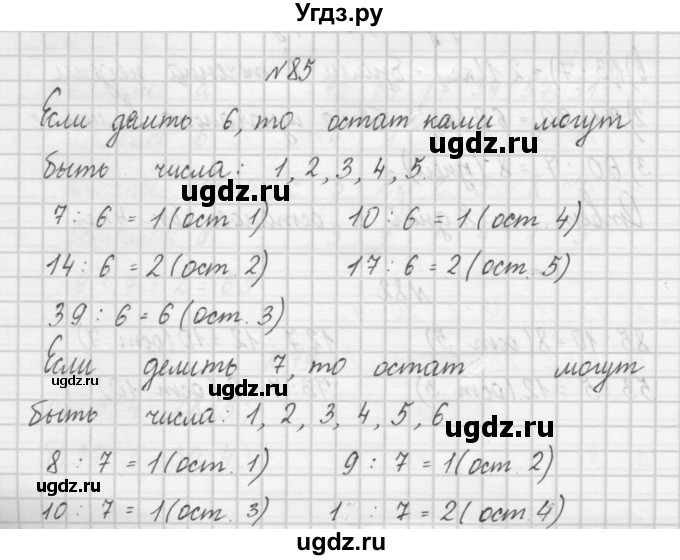 Угдз.ру
№85
Если делить 6, то остатками могут
быть числа: 1, 2, 3, 4, 5.
ugdz.ru
ugdz.ru
7 : 6 = 1 (ост. 1) 10 : 6 = 1 (ост. 4)
14 : 6 = 2 (ост. 2) 17 : 6 = 2 (ост. 5)
39 : 6 = 6 (ост. 3)
Если делить 7, то остат могут
ugdz.ru
ugdz.ru
быть числа: 1, 2, 3, 4, 5, 6
ugdz.ru
8 : 7 = 1 (ост. 1) 9 : 7 = 1 (ост. 2)
ugdz.ru
10 : 7 = 1 (ост. 3) 1 : 7 = 2 (ост. 4)
ugdz.ru